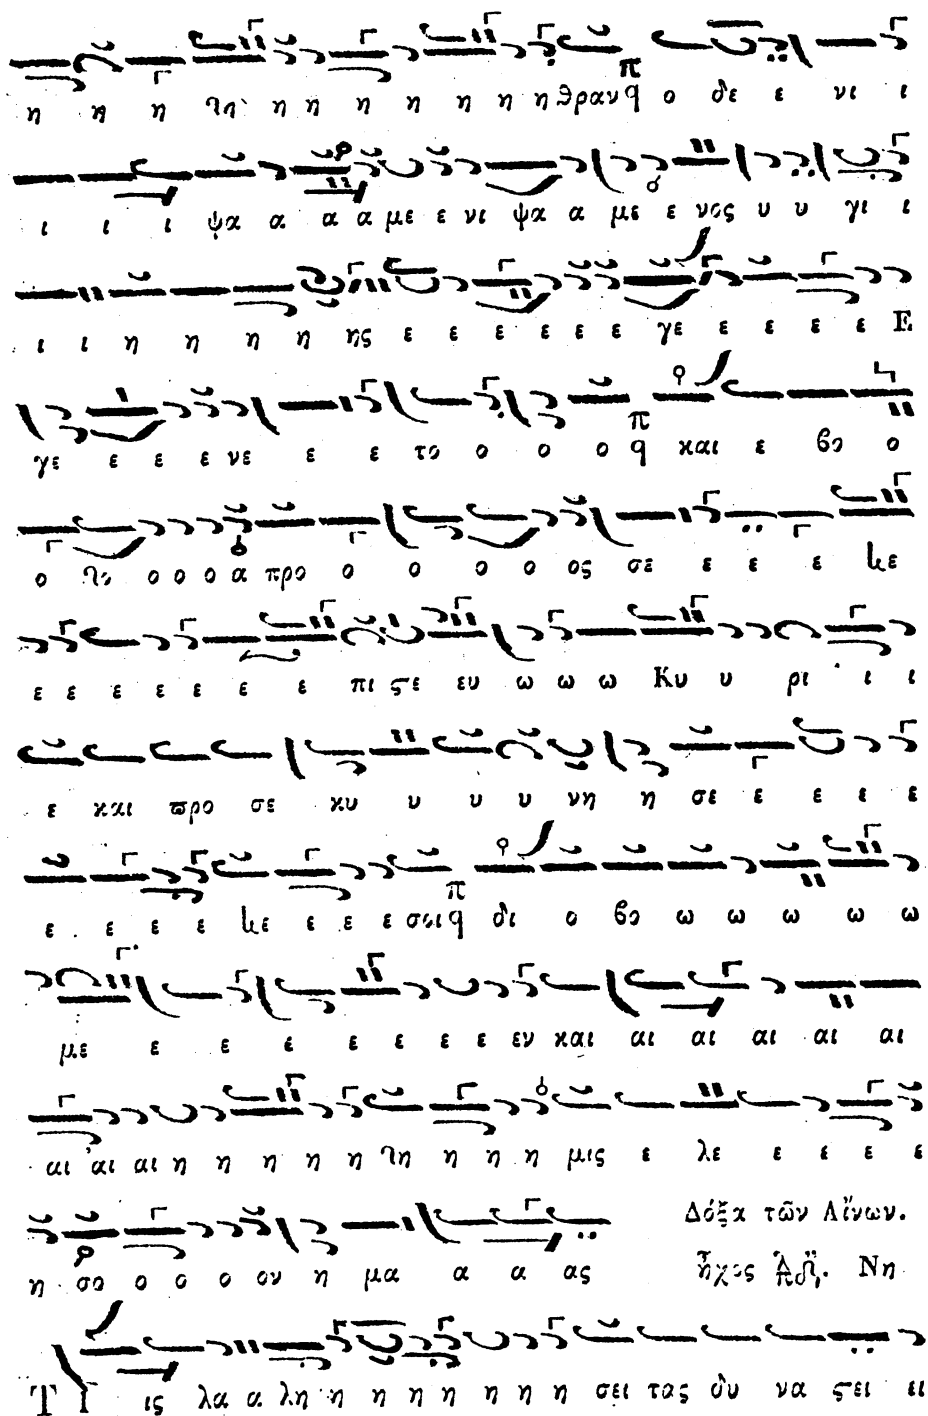 η η η τη η η η η η η η θραν ο δε ε νι ι
ι ι ι ψα α α α με ε νι ψα α με ε νος υ υ γι ι
ι ι η η η η ης ε ε ε ε ε ε γε ε ε ε ε Ε
γε ε ε ε νε ε ε το ο ο ο και ε βο ο
ο το ο ο ο α προ ο ο ο ο ος σε ε ε ε
ε ε ε ε ε ε ε πι ϛε ευ ω ω ω Κυ υ ρι ι ι
ε και προ σε κυ υ υ υ νη η σε ε ε ε ε
ε ε ε ε ε ε ε σοι δι ο βο ω ω ω ω ω
με ε ε ε ε ε ε ε εν και αι αι αι αι αι
αι αι αι η η η η η τη η η η μις ε λε ε ε ε ε
η σο ο ο ο ον η μα α α ας
Δόξα τῶν Αἴνων.
ἦχος Νη
Τ Ι ις λα α λη η η η η η η η σει τας δυ να ϛει ει